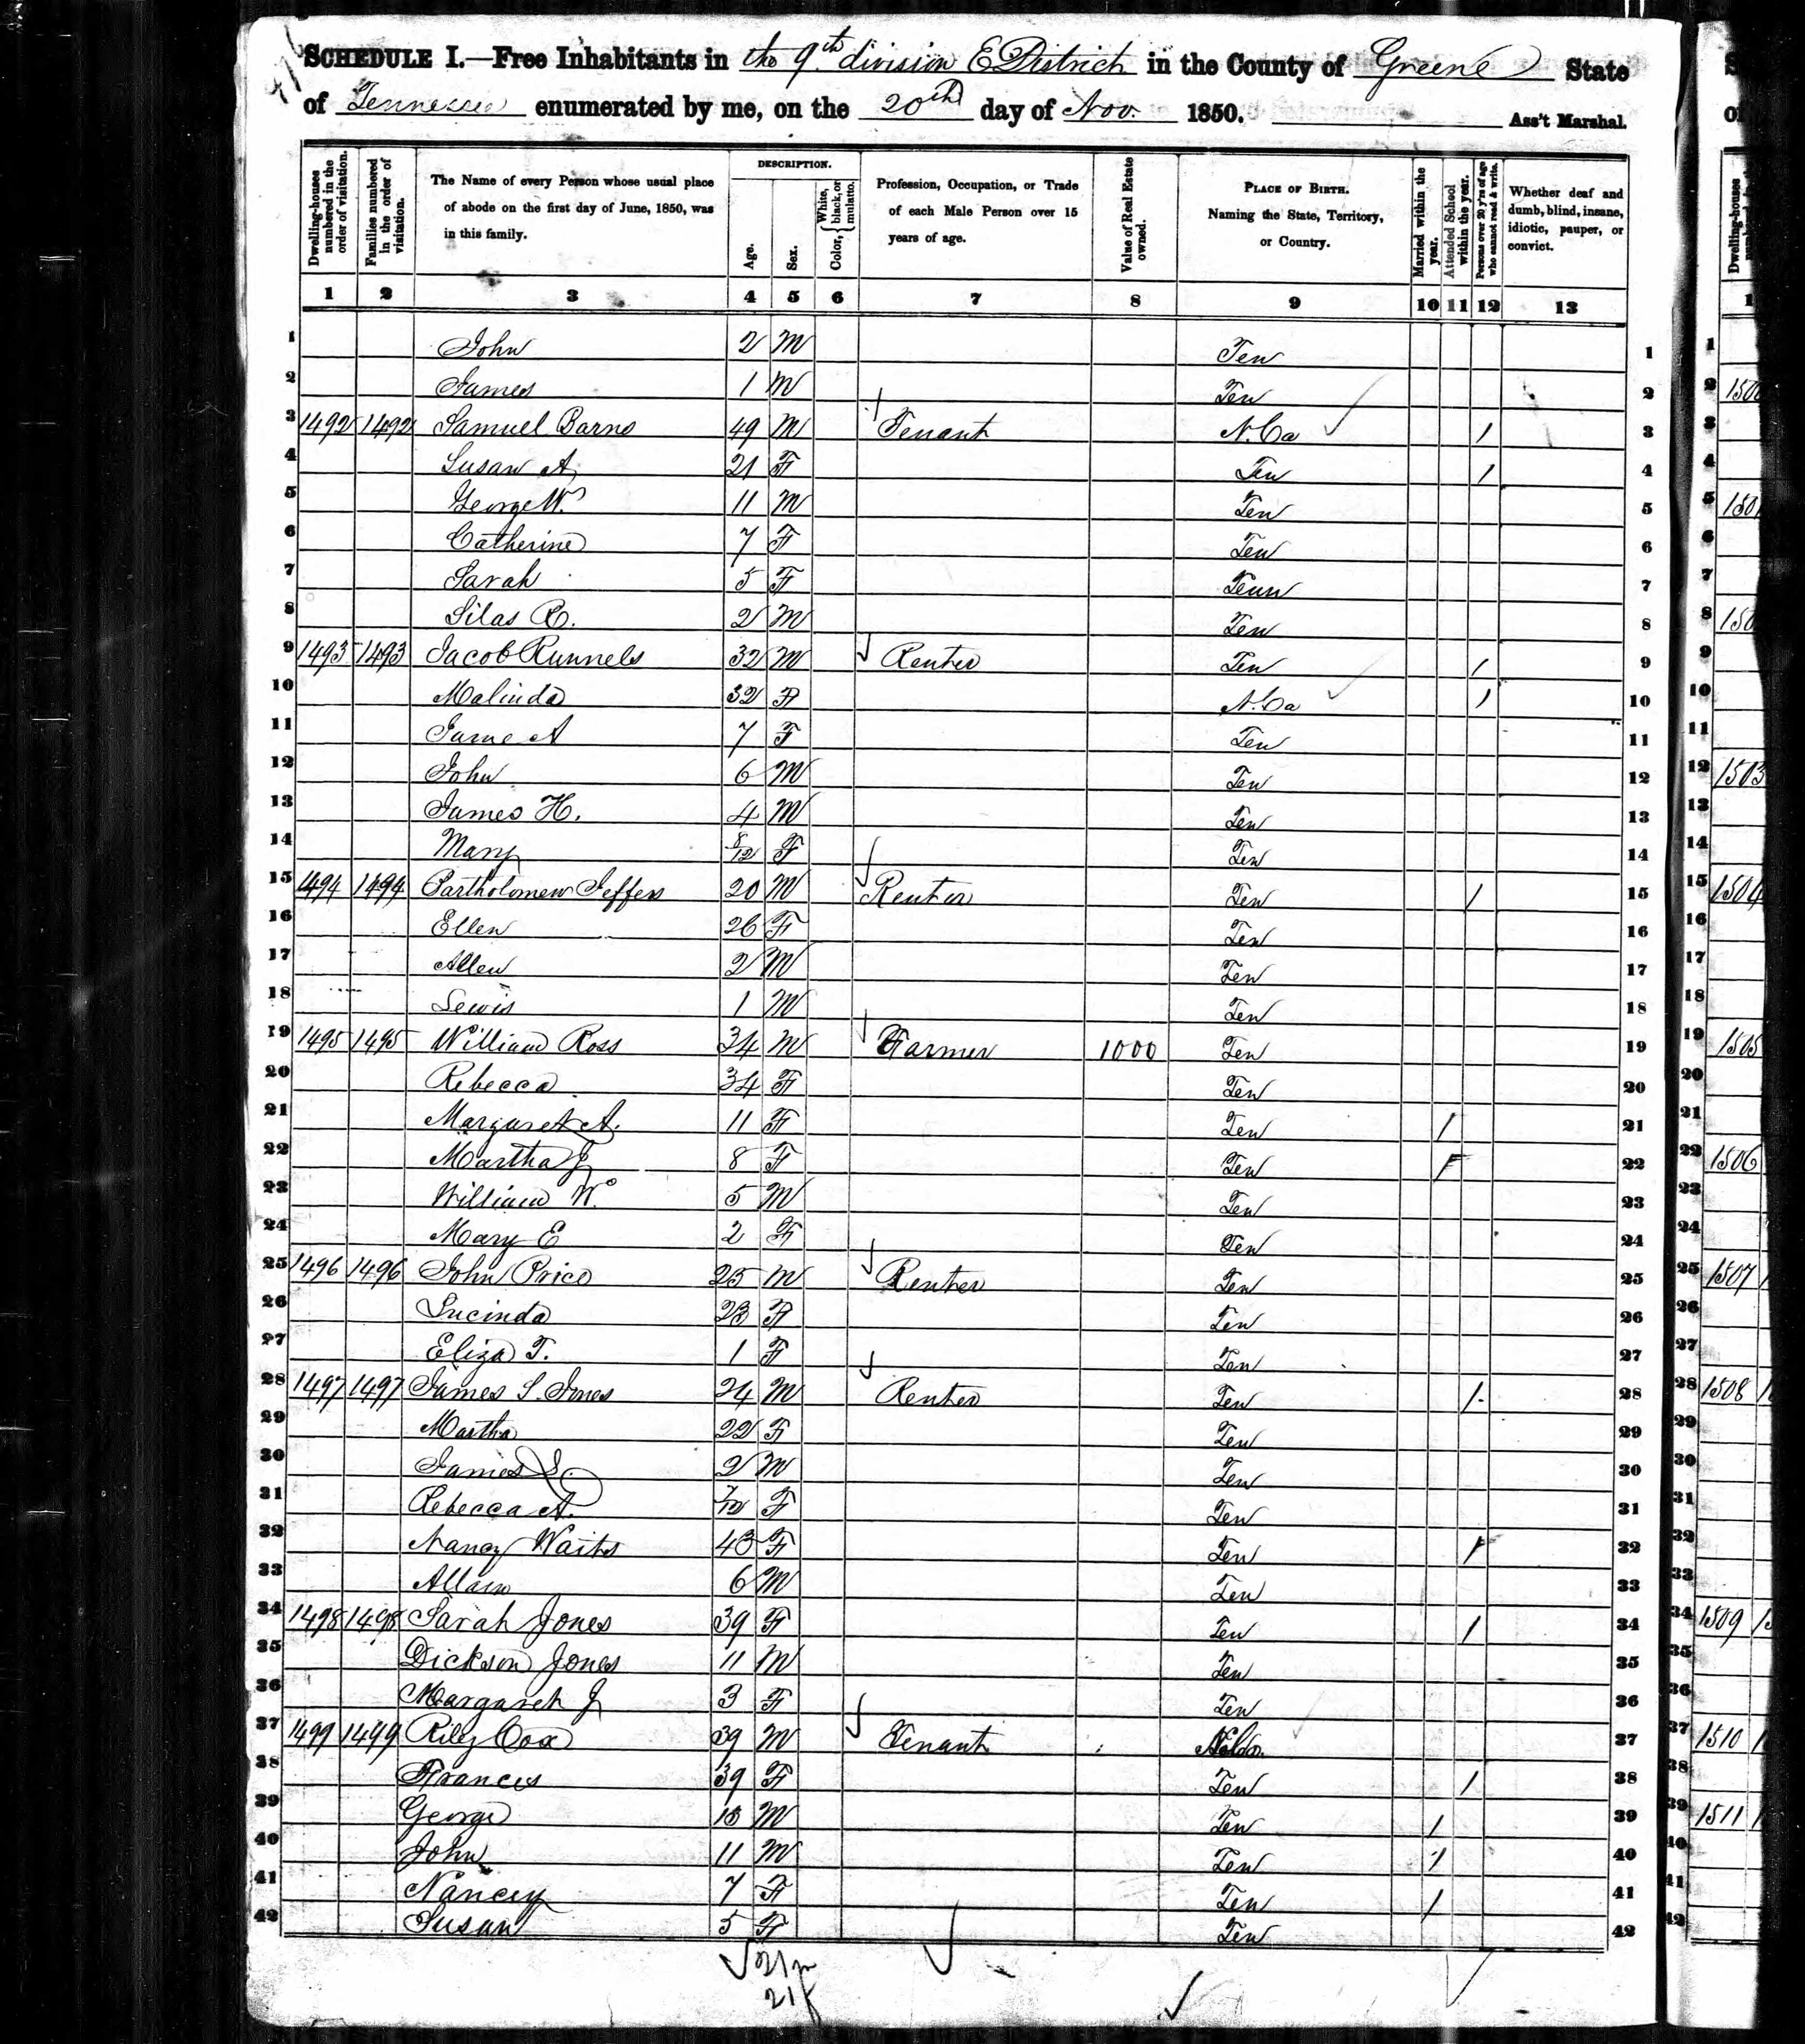 SCHEDULE I.—Free Inhabitants in the 9th division E District in the County of Greene State
of Tennessee enumerated by me, on the 20th day of Nov. 1850. Ass't Marshal.
Dwelling-houses numbered in the order of visitation.
Families numbered in the order of visitation.
The Name of every Person whose usual place of abode on the first day of June, 1850, was in this family.
DESCRIPTION.
Age.
Sex.
Color, { White, black, or mulatto.
Profession, Occupation, or Trade of each Male Person over 15 years of age.
Value of Real Estate owned.
PLACE OF BIRTH. Naming the State, Territory, or Country.
Married within the year.
Attended School within the year.
Persons over 20 y'rs of age who cannot read & write.
Whether deaf and dumb, blind, insane, idiotic, pauper, or convict.
1 2 3 4 5 6 7 8 9 10 11 12 13
1 John 2 M Ten 1
2 James 1 M Ten 2
3 1492 1492 Samuel Barns 49 M Tenant N. Ca / 3
4 Susan A 21 F Ten / 4
5 George W. 11 M Ten 5
6 Catherine 7 F Ten 6
7 Sarah 5 F Tenn 7
8 Silas R. 2 M Ten 8
9 1493 1493 Jacob Runnels 32 M Renter Ten / 9
10 Malinda 32 F N. Ca / 10
11 Jane A 7 F Ten 11
12 John 6 M Ten 12
13 James H. 4 M Ten 13
14 Mary 8/12 F Ten 14
15 1494 1494 Bartholomew Jeffers 20 M Renter Ten / 15
16 Ellen 26 F Ten 16
17 Allen 2 M Ten 17
18 Lewis 1 M Ten 18
19 1495 1495 William Ross 34 M Farmer 1000 Ten 19
20 Rebecca 34 F Ten 20
21 Margaret A. 11 F Ten / 21
22 Martha J 8 F Ten / 22
23 William W. 5 M Ten 23
24 Mary E 2 F Ten 24
25 1496 1496 John Price 25 M Renter Ten 25
26 Lucinda 23 F Ten 26
27 Eliza T. 1 F Ten 27
28 1497 1497 James S. Jones 24 M Renter Ten / 28
29 Martha 22 F Ten 29
30 James S. 2 M Ten 30
31 Rebecca A. 7/12 F Ten 31
32 Nancy Waits 43 F Ten / 32
33 6 M Ten 33
34 1498 1498 Sarah Jones 39 F Ten / 34
35 Dickson Jones 11 M Ten 35
36 Margaret J 3 F Ten 36
37 1499 1499 Riley Cox 39 M Tenant 37
38 Frances 39 F Ten / 38
39 George M Ten / 39
40 John 11 M Ten / 40
41 Nancy 7 F Ten / 41
42 Susan 5 F Ten 42
21 m
21 f
1
2
3
4
5
6
7
8
9
10
11
12 1503
13
14
15 1504
16
17
18
19 1505
20
21
22 1506
23
24
25 1507
26
27
28 1508
29
30
31
32
33
34 1509
35
36
37 1510
38
39 1511
40
41
42